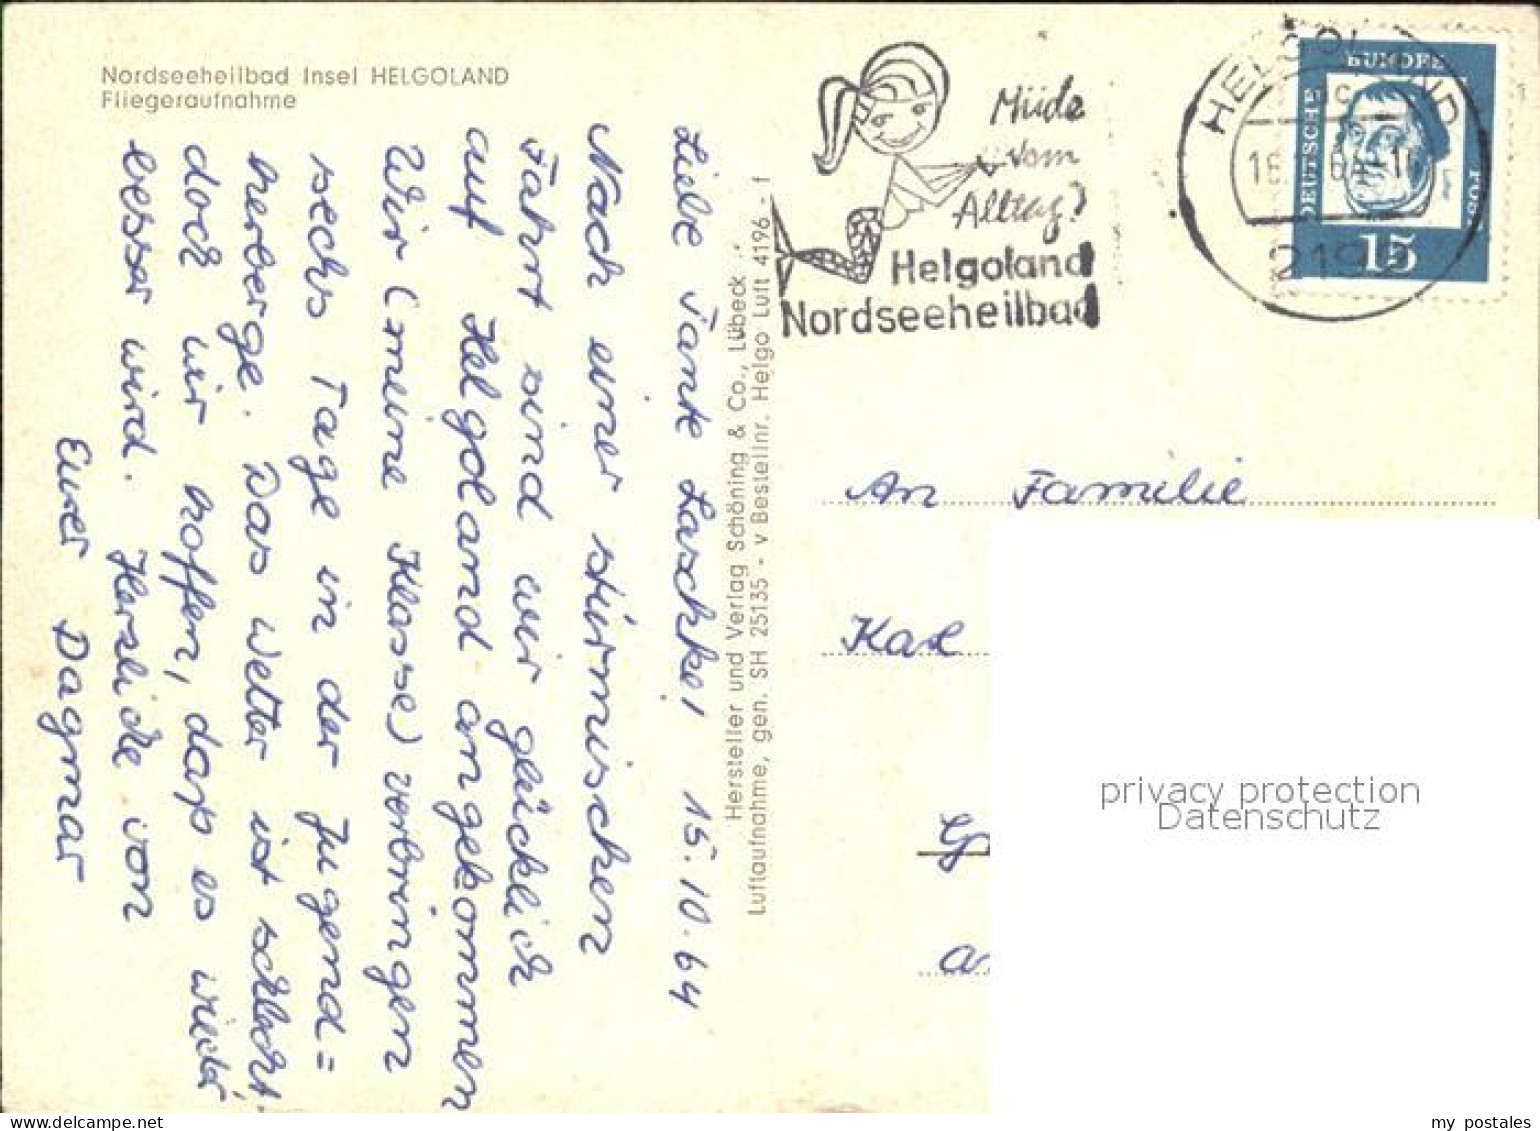 Nordseeheilbad Insel HELGOLAND
Fliegeraufnahme
Liebe Tante Laschke! 15.10.64
Nach einer stürmischen
Fahrt sind wir glücklich
auf Helgoland angekommen
Wir (meine Klasse) verbringen
sechs Tage in der Jugend=
herberge. Das Wetter ist schlecht,
doch wir hoffen, daß es wieder
besser wird. Herzliche von
Euer Dagmar
Hersteller und Verlag Schöning & Co., Lübeck
Luftaufnahme, gen. SH 25135 - v Bestellnr. Helgo Luft 4196 - f
Müde
vom
Alltag?
Helgoland
Nordseeheilbad
HELGOLAND
2192
DEUTSCHE
BUNDES
POST
15
An Familie
Karl
privacy protection
Datenschutz
my postales